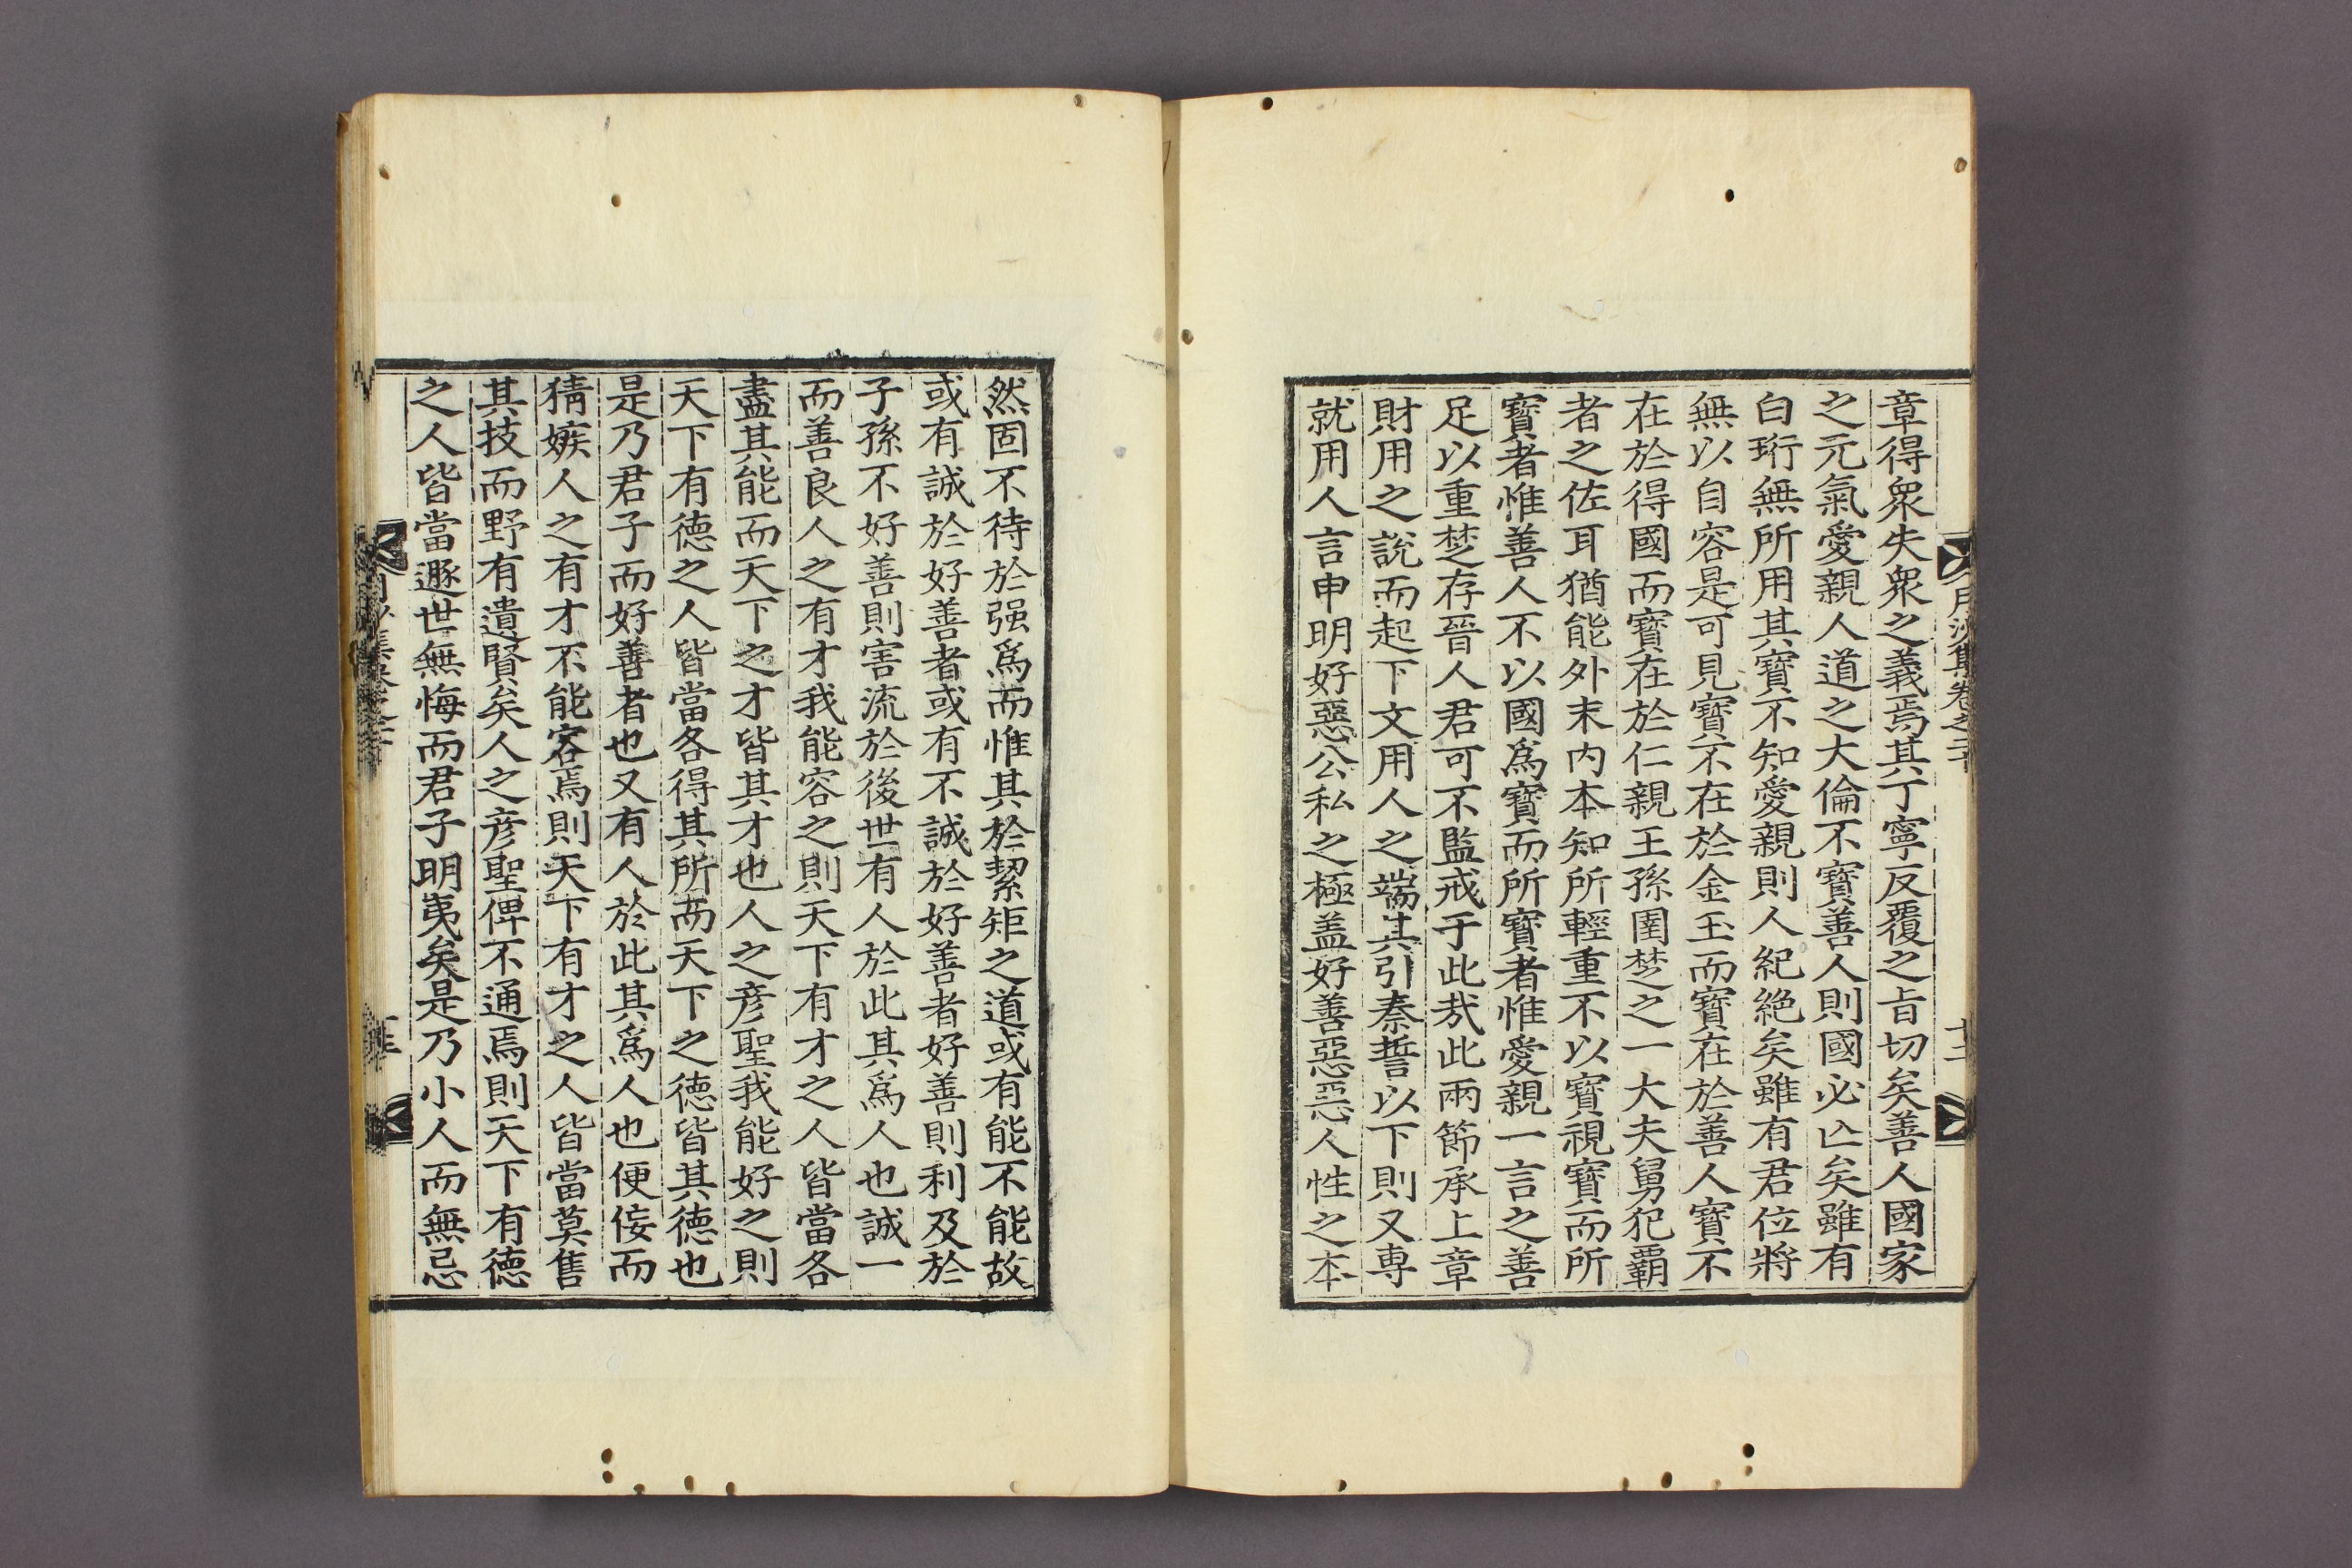 章得衆失衆之義焉其丁寧反覆之旨切矣善人國家
之元氣愛親人道之大倫不寶善人則國必亾矣雖有
白珩無所用其寶不知愛親則人紀絶矣雖有君位將
無以自容是可見寶不在於金玉而寶在於善人寶不
在於得國而寶在於仁親王孫圉楚之一大夫舅犯覇
者之佐耳猶能外末内本知所輕重不以寶視寶而所
寶者惟善人不以國爲寶而所寶者惟愛親一言之善
足以重楚存晉人君可不監戒于此㦲此兩節承上章
財用之說而起下文用人之端其引秦誓以下則又專
就用人言申明好惡公私之極盖好善惡惡人性之本
月沙集卷之二十
十二
然固不待於强爲而惟其於絜矩之道或有能不能故
或有誠於好善者或有不誠於好善者好善則利及於
子孫不好善則害流於後世有人於此其爲人也誠一
而善良人之有才我能容之則天下有才之人皆當各
盡其能而天下之才皆其才也人之彦聖我能好之則
天下有德之人皆當各得其所而天下之德皆其德也
是乃君子而好善者也又有人於此其爲人也便侫而
猜嫉人之有才不能容焉則天下有才之人皆當莫售
其技而野有遺賢矣人之彦聖俾不通焉則天下有德
之人皆當遯世無悔而君子明夷矣是乃小人而無忌